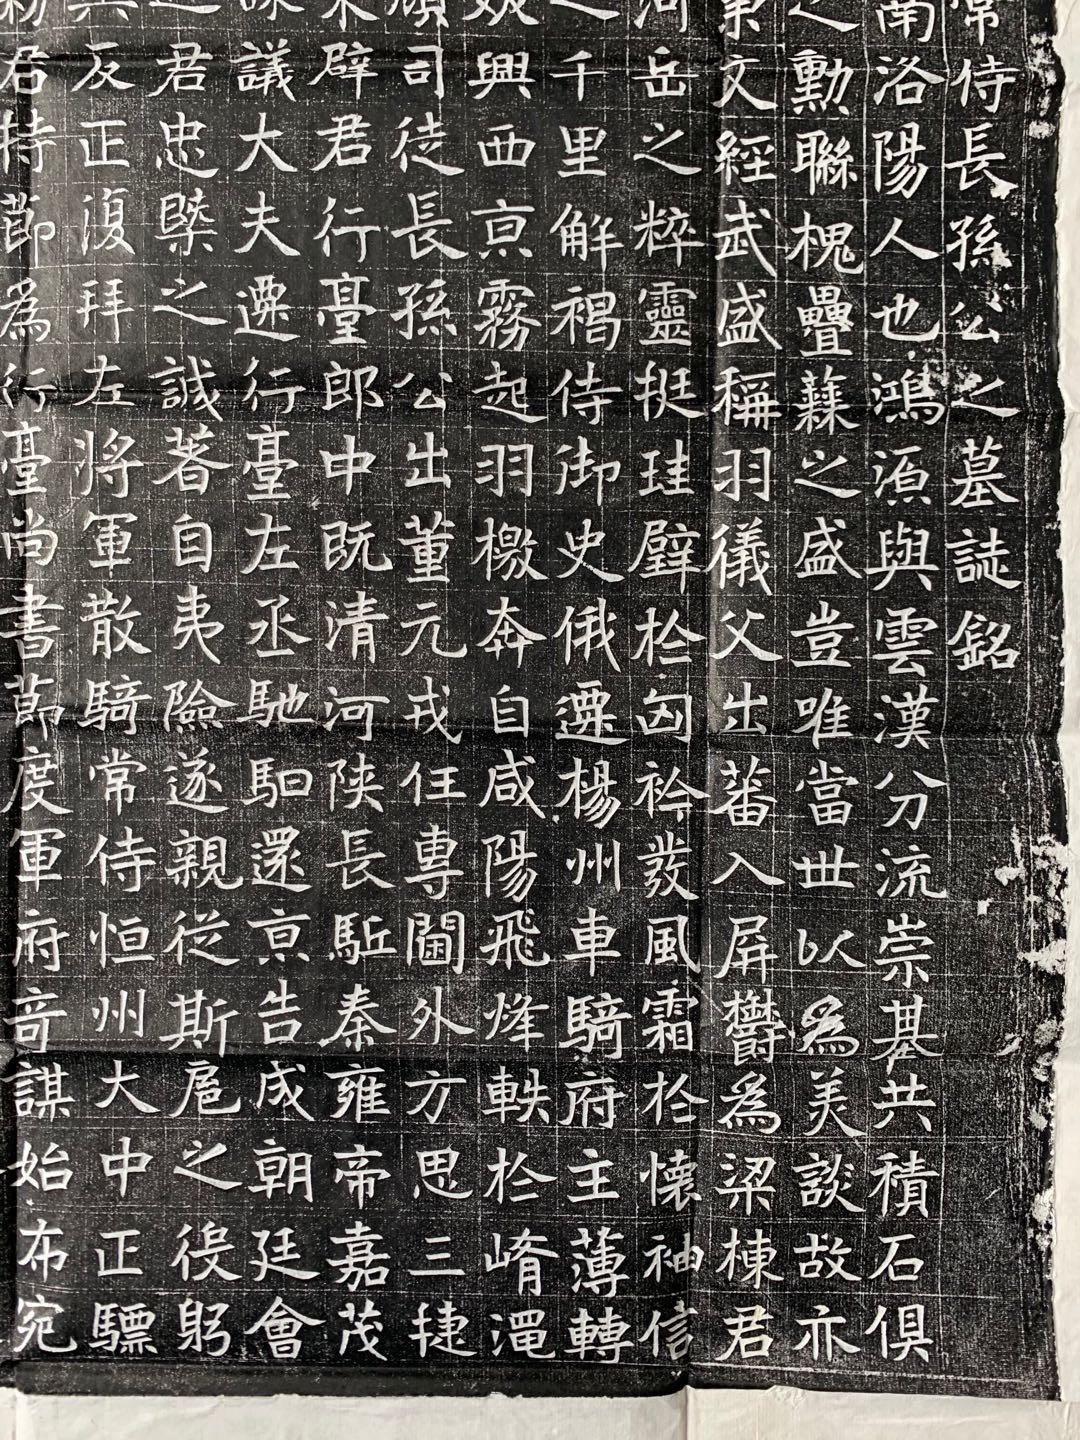 常侍長孫公之墓誌銘
南洛陽人也鴻源與雲漢分流崇基共積石俱
之勳聯槐疊蕀之盛豈唯當世以為美談故亦
業文經武盛稱羽儀父出蕃入屏欝為梁棟君
河岳之粹靈挺珪璧於匈衿發風霜於懷袖信
之千里解褐侍御史俄遷楊州車騎府主薄轉
興西京霧起羽檄奔自咸陽飛烽軼於崤澠
顧司徒長孫公出董元戎任專閫外方思三捷
來辟君行臺郎中既清河陝長駈秦雍帝嘉茂
議大夫遷行臺左丞馳駟還京告成朝廷會
君忠槩之誠著自夷險遂親從斯扈之役躬
反正復拜左將軍散騎常侍恒州大中正驃
君持節為行臺尚書節度軍府奇謀始布宛